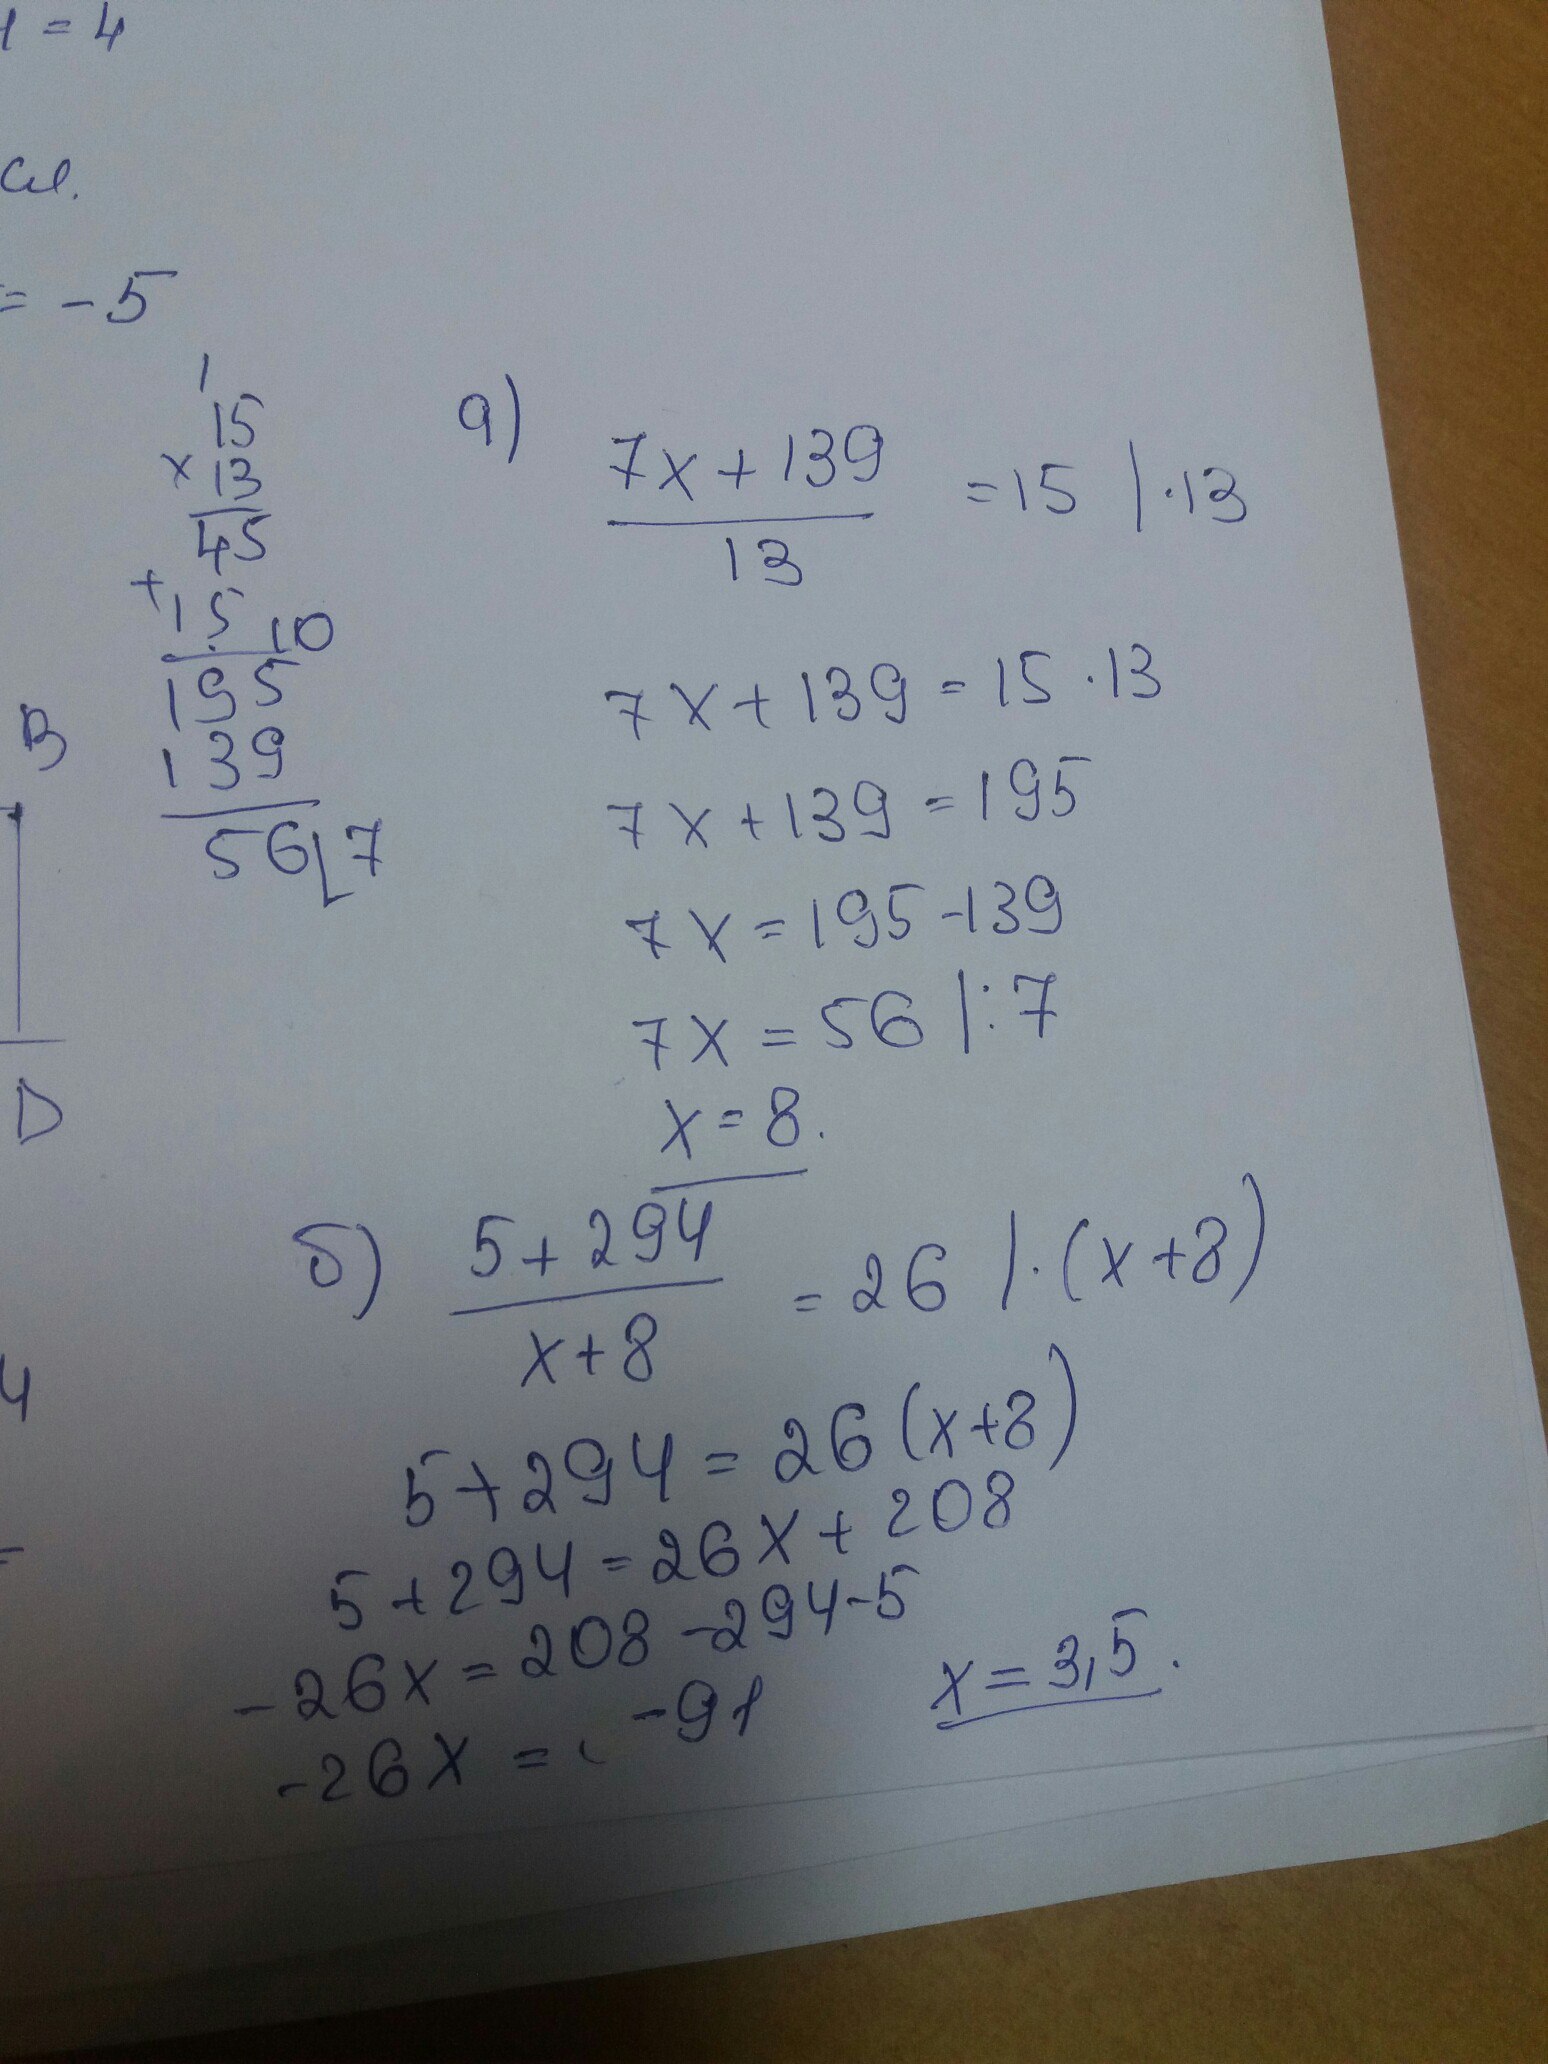 = 4
= -5
1
15
× 13
45
+ 15
10
195
139
56 7
B
D
4
=
а) 7x + 139 = 15 | · 13
13
7x + 139 = 15 · 13
7x + 139 = 195
7x = 195 - 139
7x = 56 | : 7
x = 8.
б) 5 + 294 = 26 | · (x + 8)
x + 8
5 + 294 = 26 (x + 8)
5 + 294 = 26x + 208
- 26x = 208 - 294 - 5
- 26x = - 91
x = 3,5.